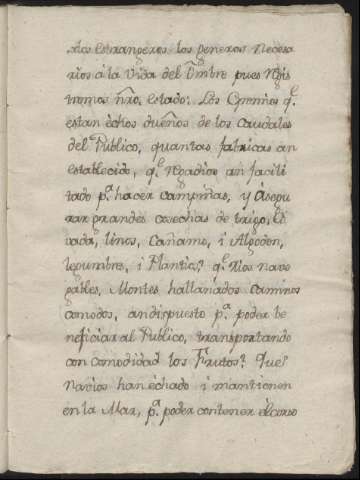 rios estrangeros los generos necesa
rios á la Vida del Ombre pues
nrõ. estado. Los Gremios q.^e
estan échos dueños de los Caudales
del Publico, quantas fabricas an
establecido, q.^e an facili
tado p.^a hacer campiñas, y ásegu
rar grandes cosechas de trigo,
vada, linos, Cañamo, i Algodon,
legumbres, i q.^e Rios nave
gables, Montes hallanados caminos
comodos, an dispuesto p.^a poder be
neficiar al Publico, transportando
con comodidad los Frutos? Que?
Navios han échado i mantienen
en la Mar, p.^a poder contener el corso